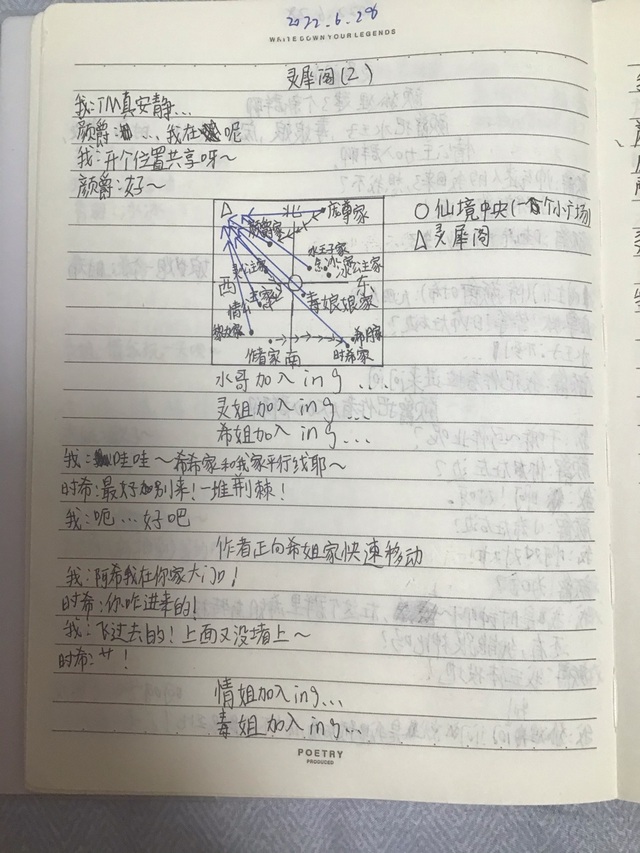 2022.6.26
WRITE DOWN YOUR LEGENDS
灵犀阁(2)
我:TM真安静...
颜爵:...我在呢
我:开个位置共享呀~
颜爵:好~
△ 北 庞尊家
颜爵家
水王子家
冰公主家
西 东
毒娘娘家
情
作者家 南 时希家
○仙境中央(一个小广场)
△灵犀阁
水哥加入ing...
灵姐加入ing...
希姐加入ing...
我:哇哇~希希家和我家平行线耶~
时希:最好别来!一堆荆棘!
我:呃...好吧
作者正向希姐家快速移动
我:阿希我在你家大门口!
时希:你咋进来的!
我:飞过去的!上面又没堵上~
时希:艹!
情姐加入ing...
毒姐加入ing...
POETRY
PRODUCED